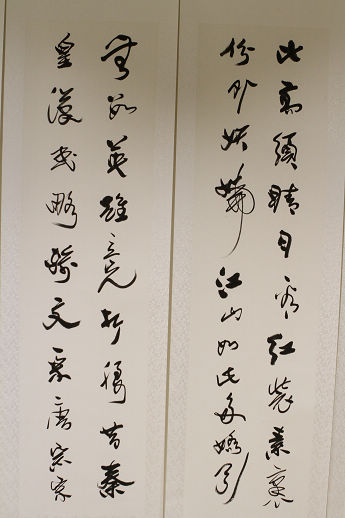 比高须晴日看红装素裹
份外妖娆江山如此多娇引
无数英雄竞折腰昔秦
皇汉武略输文采唐宗宋